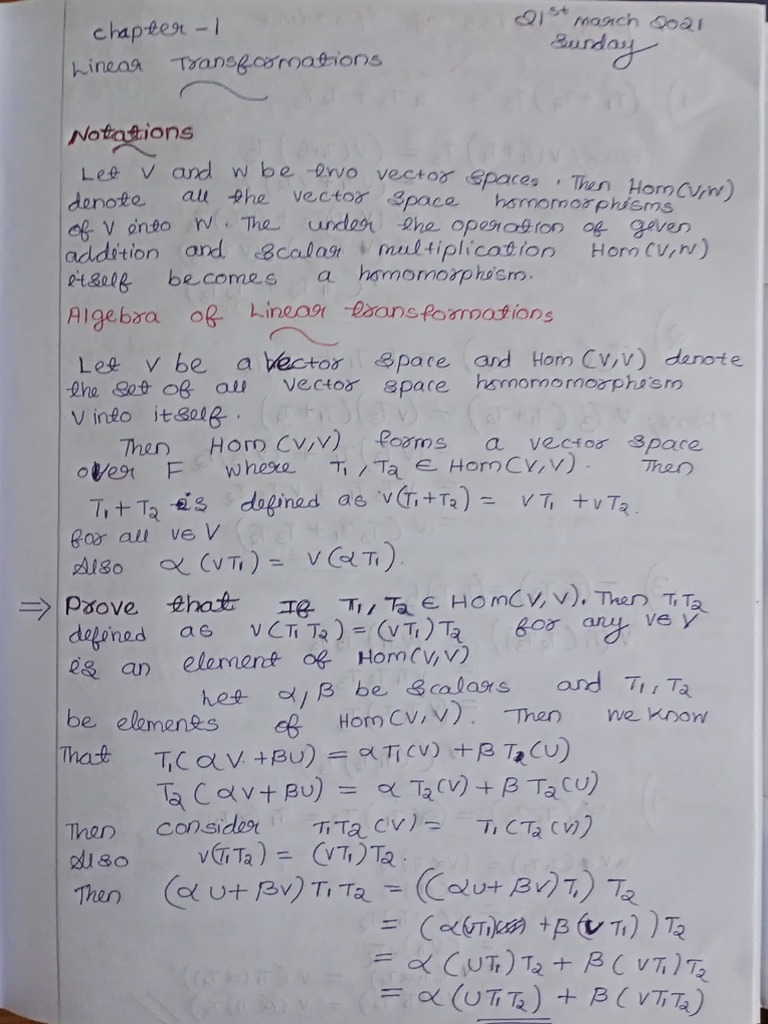 chapter - 1
21st march 2021
Sunday
Linear Transformations
Notations
Let V and W be two vector spaces. Then Hom(V,W)
denote all the vector space homomorphisms
of V into W. The under the operation of given
addition and scalar multiplication Hom(V,W)
itself becomes a homomorphism.
Algebra of Linear transformations
Let V be a vector space and Hom (V,V) denote
the set of all vector space homomomorphism
V into itself.
Then Hom (V,V) forms a vector space
over F where T₁, T₂ ∈ Hom(V,V). Then
T₁ + T₂ is defined as v(T₁+T₂) = vT₁ + vT₂.
for all v∈V
Also α(vT₁) = v(αT₁).
⇒ Prove that If T₁, T₂ ∈ Hom(V,V). Then T₁T₂
defined as v(T₁T₂) = (vT₁)T₂ for any v∈V
is an element of Hom(V,V)
Let α, β be scalars and T₁, T₂
be elements of Hom(V,V). Then we know
That T₁(αV + βU) = αT₁(V) + βT₂(U)
T₂(αV + βU) = αT₂(V) + βT₂(U)
Then consider T₁T₂(V) = T₁(T₂(V))
Also V(T₁T₂) = (VT₁)T₂.
Then (αU + βV)T₁T₂ = ((αU + βV)T₁)T₂
= (α(UT₁) + β(VT₁))T₂
= α(UT₁)T₂ + β(VT₁)T₂
= α(UT₁T₂) + β(VT₁T₂)